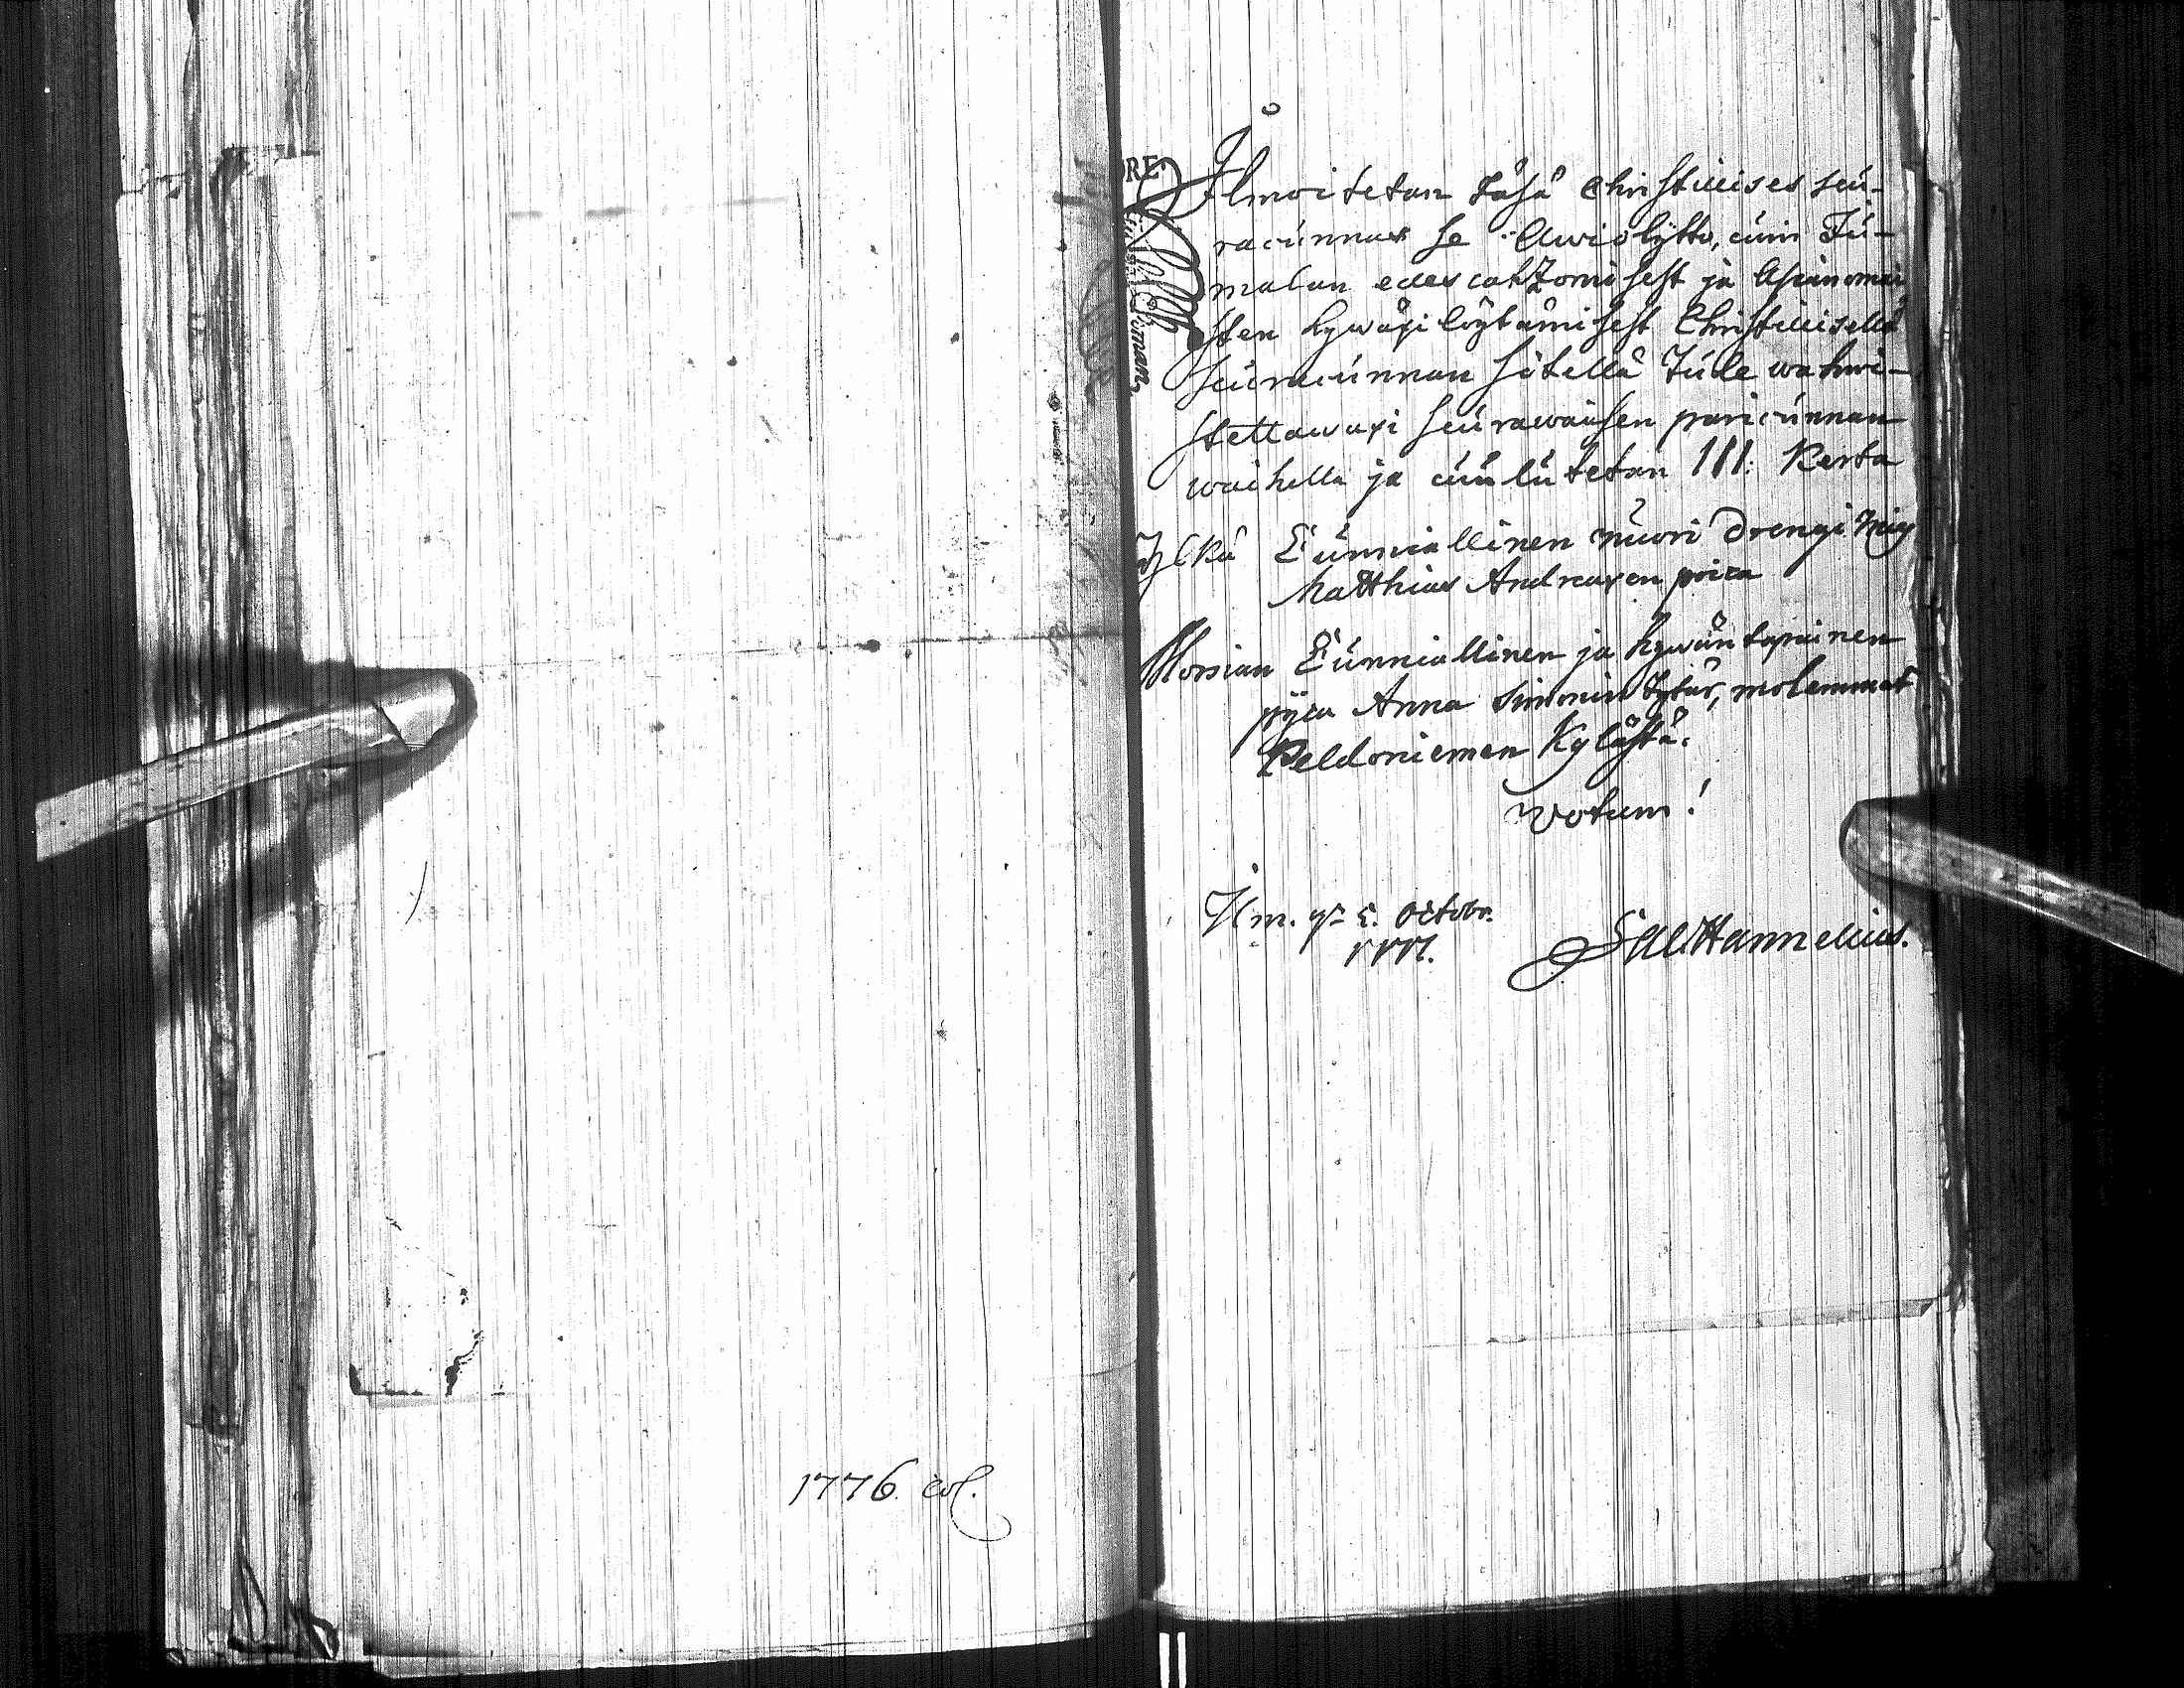 1776. col.
Ilmoitetan täsä Christillises seu-
racunnas se Awiolijtto, cuin Ju-
malan edescatzomisest ja Asianomai
sten hywäxi löytämisest Christillisellä
seuracunnan sitellä tule wahwi-
stettawaxi seurawaisen paricunnan
waihella ja cuulutetan III: Kerta
Yljkä Cunniallinen nuori Drengi Mies
Matthias Andreaxen poica
Morsian Cunniallinen ja hywäntapainen
pijca Anna Simonin tytär, molemmat
Peldoniemen Kylästä.
Votum!
Ilm. 5. Octobr.
Hannelius.